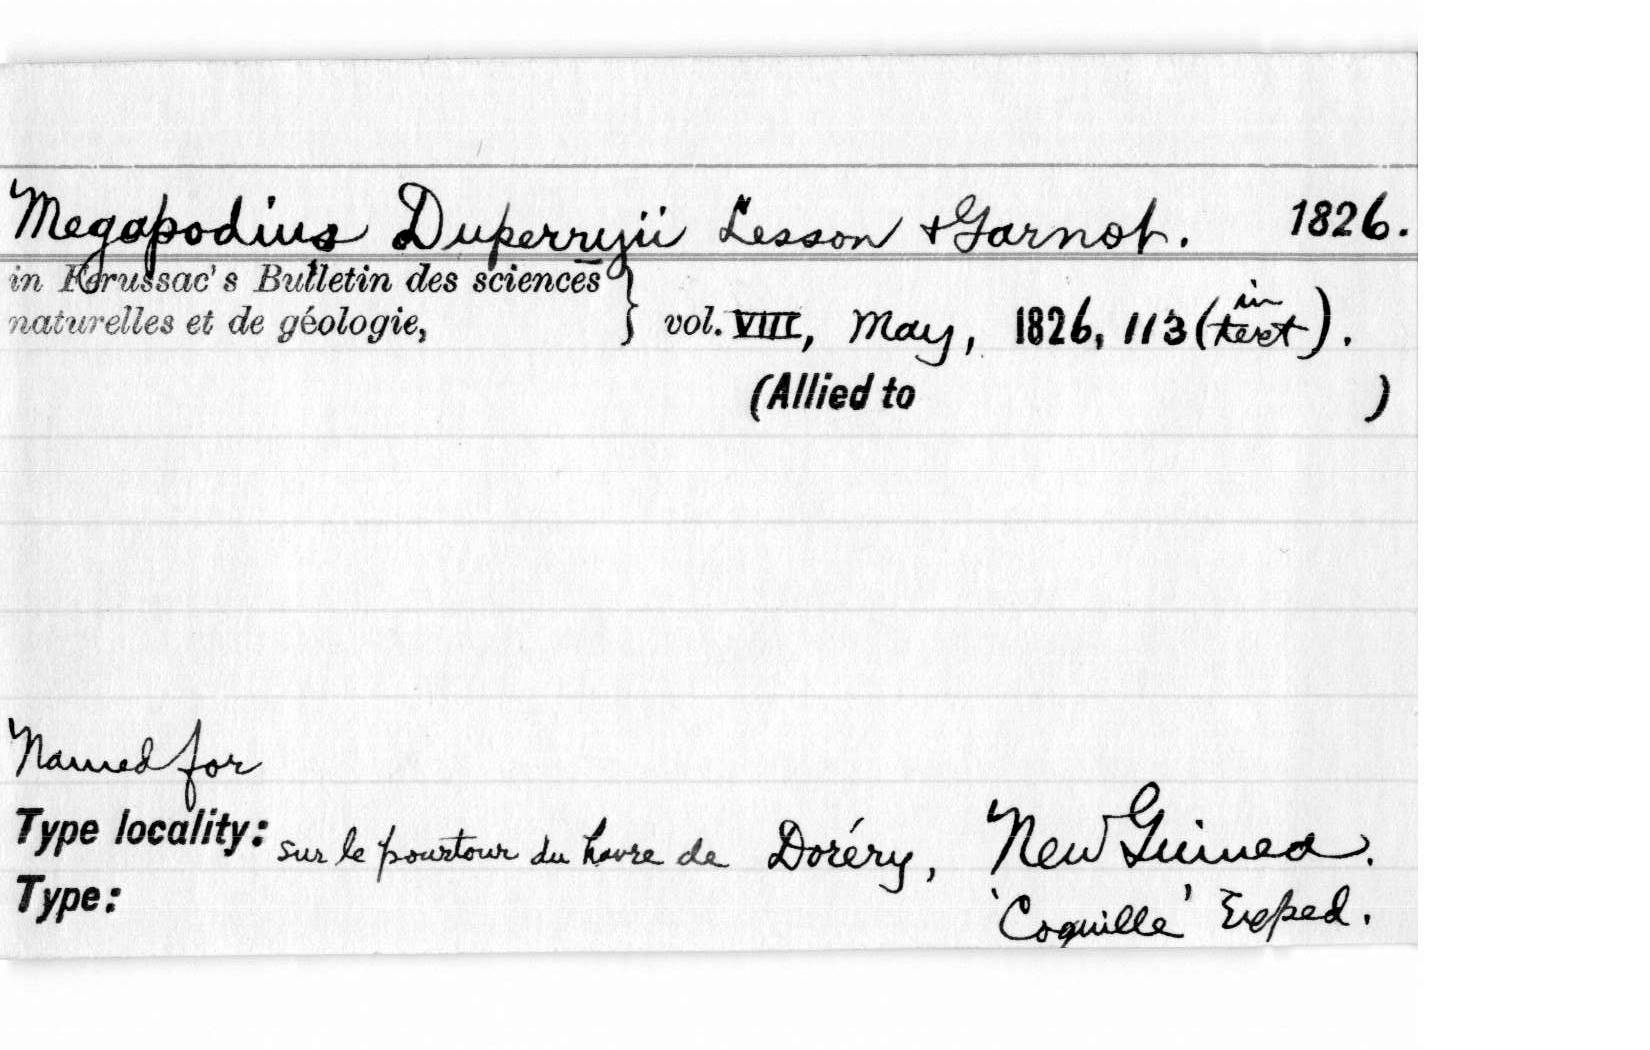 Megapodius Duperryii Lesson & Garnot. 1826.
in Ferussac's Bulletin des sciences
naturelles et de géologie, } vol. VIII, May, 1826, 113 (in text).
(Allied to )
Named for
Type locality: sur le pourtour du havre de Doréry, New Guinea.
Type: 'Coquille' Exped.